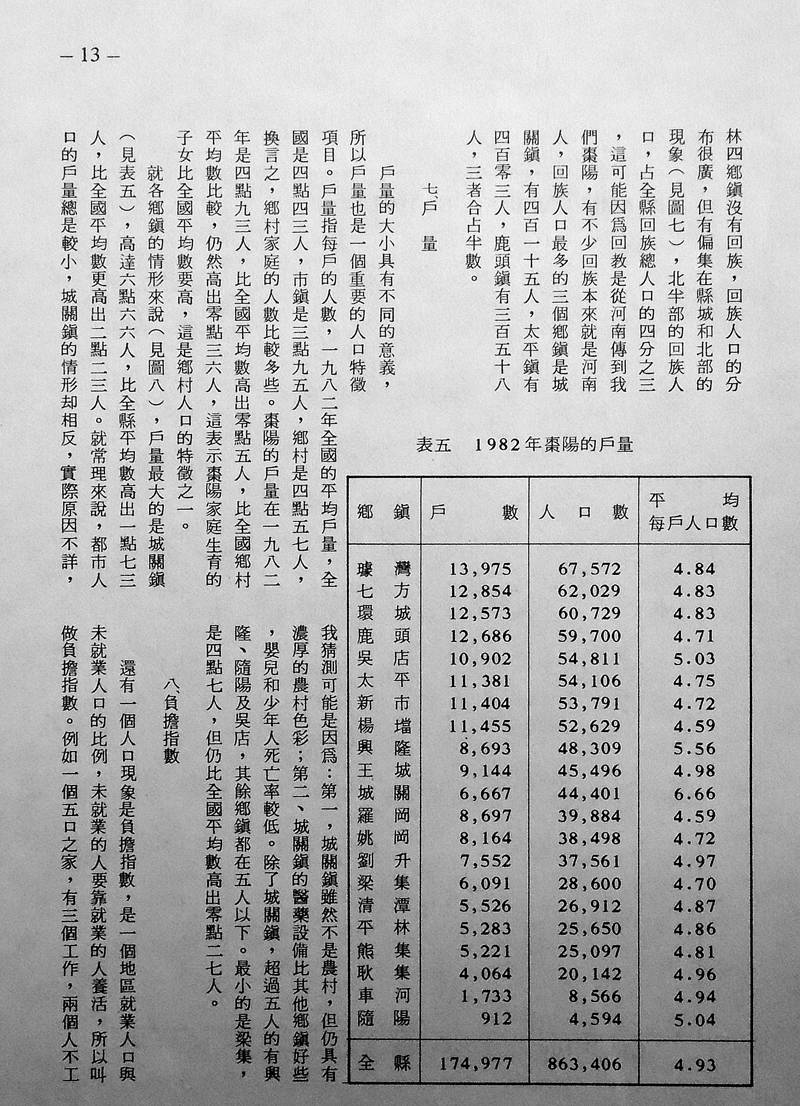 — 13 —
林四鄉鎮沒有回族，回族人口的分
布很廣，但有偏集在縣城和北部的
現象（見圖七），北半部的回族人
口，占全縣回族總人口的四分之三
，這可能因爲回教是從河南傳到我
們棗陽，有不少回族本來就是河南
人，回族人口最多的三個鄉鎮是城
關鎮，有四百一十五人，太平鎮有
四百零三人，鹿頭鎮有三百五十八
人，三者合占半數。
七、戶　量
戶量的大小具有不同的意義，
所以戶量也是一個重要的人口特徵
項目。戶量指每戶的人數，一九八二年全國的平均戶量，全
國是四點四三人，市鎮是三點九五人，鄉村是四點五七人，
換言之，鄉村家庭的人數比較多些。棗陽的戶量在一九八二
年是四點九三人，比全國平均數高出零點五人，比全國鄉村
平均數比較，仍然高出零點三六人，這表示棗陽家庭生育的
子女比全國平均數要高，這是鄉村人口的特徵之一。
就各鄉鎮的情形來說（見圖八），戶量最大的是城關鎮
（見表五），高達六點六六人，比全縣平均數高出一點七三
人，比全國平均數更高出二點二三人。就常理來說，都市人
口的戶量總是較小，城關鎮的情形却相反，實際原因不詳，
表五　1982年棗陽的戶量
鄉鎮　戶數　人口數　平均每戶人口數
璩灣　13,975　67,572　4.84
七方　12,854　62,029　4.83
環城　12,573　60,729　4.83
鹿頭　12,686　59,700　4.71
吳店　10,902　54,811　5.03
太平　11,381　54,106　4.75
新市　11,404　53,791　4.72
楊壋　11,455　52,629　4.59
興隆　8,693　48,309　5.56
王城　9,144　45,496　4.98
城關　6,667　44,401　6.66
羅岡　8,697　39,884　4.59
姚岡　8,164　38,498　4.72
劉升　7,552　37,561　4.97
梁集　6,091　28,600　4.70
清潭　5,526　26,912　4.87
平林　5,283　25,650　4.86
熊集　5,221　25,097　4.81
耿集　4,064　20,142　4.96
車河　1,733　8,566　4.94
隨陽　912　4,594　5.04
全縣　174,977　863,406　4.93
我猜測可能是因爲：第一，城關鎮雖然不是農村，但仍具有
濃厚的農村色彩；第二、城關鎮的醫藥設備比其他鄉鎮好些
，嬰兒和少年人死亡率較低。除了城關鎮，超過五人的有興
隆、隨陽及吳店，其餘鄉鎮都在五人以下。最小的是梁集，
是四點七人，但仍比全國平均數高出零點二七人。
八、負擔指數
還有一個人口現象是負擔指數，是一個地區就業人口與
未就業人口的比例，未就業的人要靠就業的人養活，所以叫
做負擔指數。例如一個五口之家，有三個工作，兩個人不工